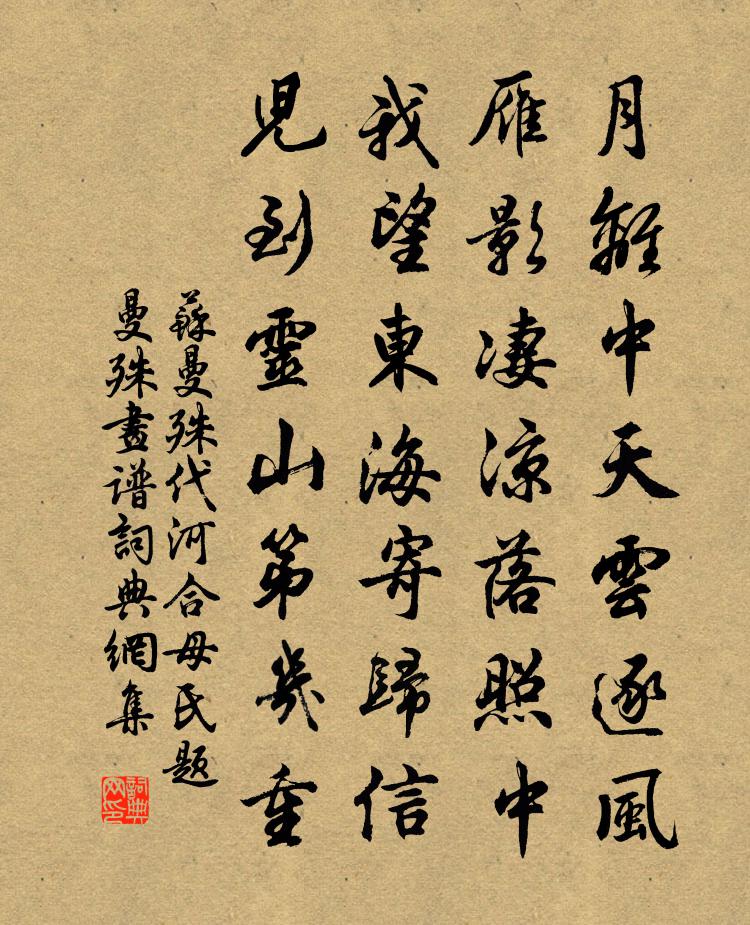 月離中天雲逐風
雁影凄凉落照中
我望東海寄歸信
兒到靈山第幾重
蘇曼殊代河合母氏題
曼殊畫谱詞典網集
詞典网印